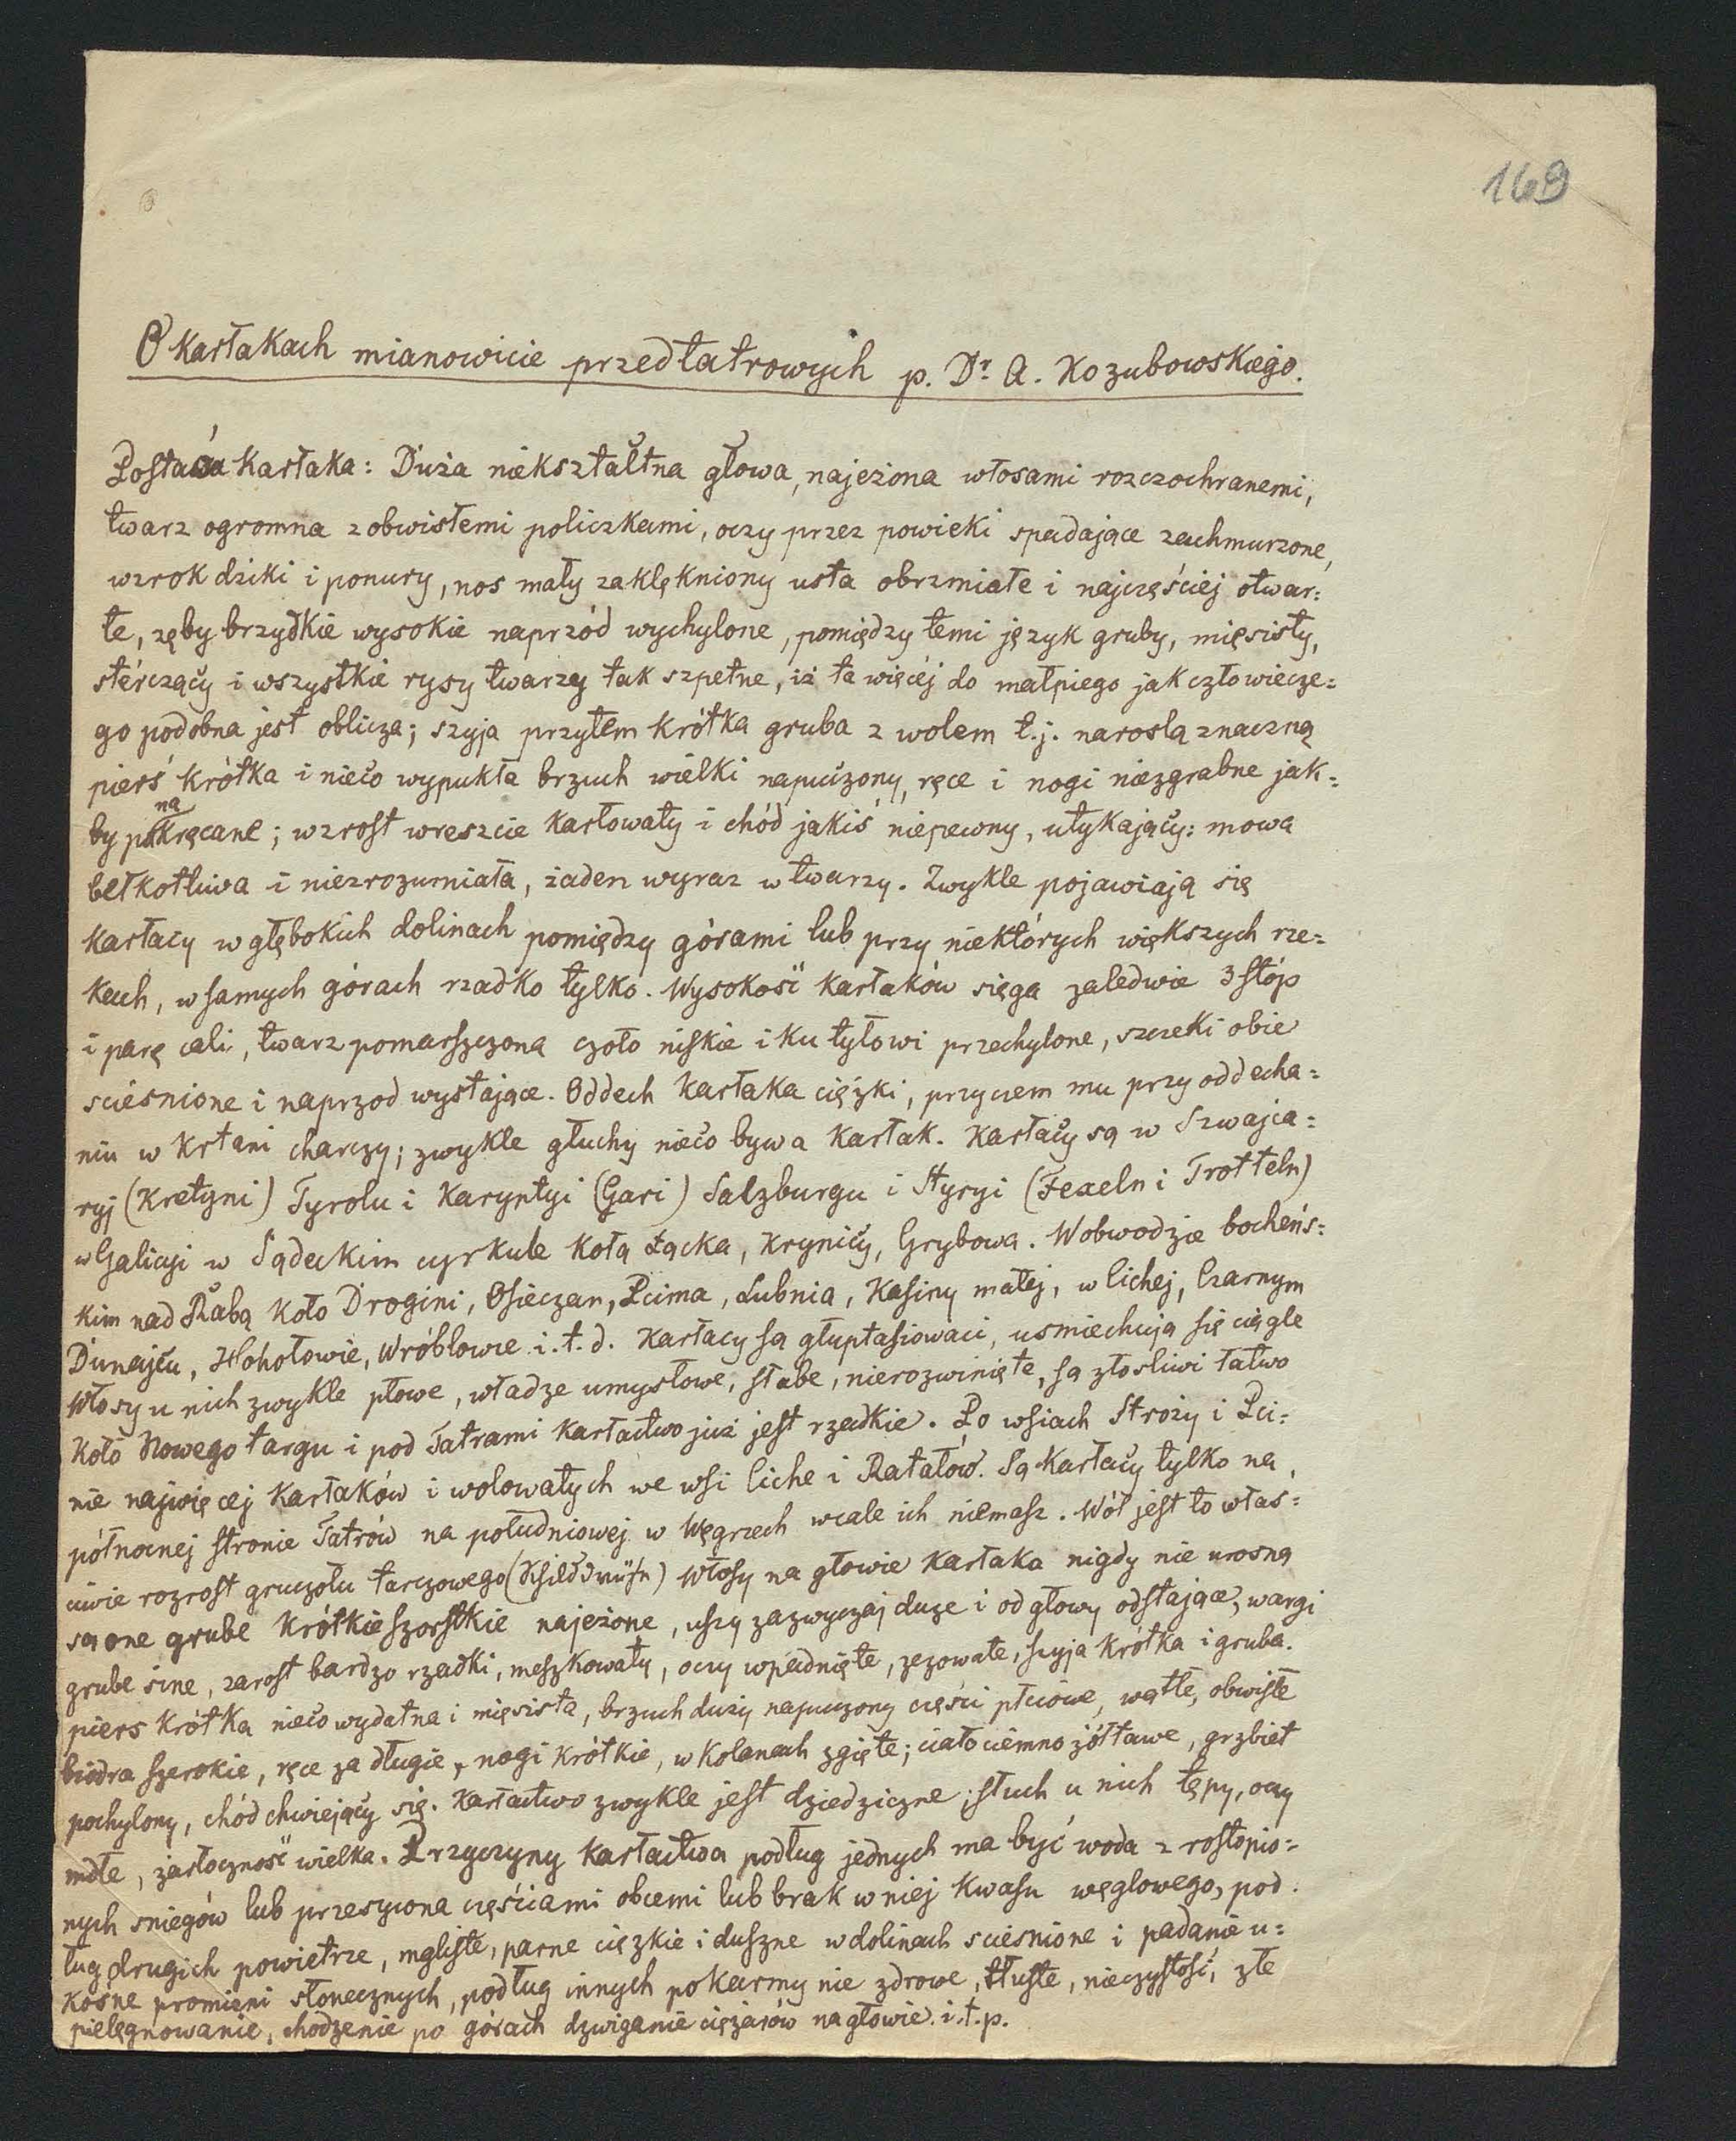 169
O Kartakach mianowicie przedtatrowych p. Dr. A. Kozubowskiego.
Postać Kartaka: Duża niekształtna głowa, najeżona włosami rozczochranemi,
twarz ogromna z obwisłemi policzkami, oczy przez powieki spadające zachmurzone,
wzrok dziki i ponury, nos mały zaklękniony usta obrzmiałe i najczęściej otwar=
te, zęby brzydkie wysokie naprzód wychylone, pomiędzy temi język gruby, mięsisty,
stérczący i wszystkie rysy twarzy tak szpetne, iż ta więcéj do małpiego jak człowiecze=
go podobna jest oblicza; szyja przytem krótka gruba z wolem t.j. naroslą znaczną
pierś krótka i nieco wypukła brzuch wielki napuczony, ręce i nogi niezgrabne jak=
by pokręcane; wzrost wreszcie karłowaty i chód jakiś niepewny, utykający: mowa
na
bełkotliwa i niezrozumiała, żaden wyraz w twarzy. Zwykle pojawiają się
kartacy w głębokich dolinach pomiędzy górami lub przy niektórych większych rze=
kach, w samych górach rzadko tylko. Wysokość kartaków sięga zaledwie 3 stóp
i parę cali, twarz pomarszczona czoło niskie i ku tyłowi przechylone, szczeki obie
scieśnione i naprzod wystające. Oddech kartaka ciężki, przyczem mu przy oddecha=
niu w krtani charczy; zwykle głuchy nieco bywa kartak. Kartacy są w Szwajca=
ryj (Kretyni) Tyrolu i Karyntyi (Gari) Salzburgu i Styryi (Fexeln i Trotteln)
w Galicyi w Sądeckim cyrkule koła Łącka, Krynicy, Grybowa. W obwodzie bocheńs=
kim nad Rabą koło Drogini, Osieczan, Pcima, Lubnia, Kasiny małej, w Cichej, Czarnym
Dunajcu, Hohołowie, Wróblowie i.t.d. Kartacy są głuptasiowaci, usmiechają się ciągle
Włosy u nich zwykle płowe, władze umysłowe, słabe, nierozwinięte, są złosliwi łatwo
Koło Nowego targu i pod Tatrami kartactwo już jest rzadkie. Po wsiach Stroży i Pci=
nie najwięcej kartaków i wolowatych we wsi Ciche i Ratałów. Są Kartacy tylko na
północnej stronie Tatrów na południowej w Węgrzech wcale ich niemasz. Wól jest to włas=
ciwie rozrost gruczołu tarczowego (Schilddrüse) Włosy na głowie kartaka nigdy nie urosną
są one grube krótkie szorstkie najeżone, uszy zazwyczaj duze i od głowy odstające, wargi
grube sine, zarost bardzo rzadki, meszkowaty, oczy wpadnięte, zezowate, szyja krótka i gruba.
piers krótka nieco wydatna i mięsista, brzuch duży napuczony części płciowe, wątłe, obwisłe
biodra szerokie, ręce za długie, nogi krótkie, w kolanach zgięte; ciało ciemno żółtawe, grzbiet
pochylony, chód chwiejący się. Kartactwo zwykle jest dziedziczne; słuch u nich tępy, oczy
mdłe, żarłoczność wielka. Przyczyny kartactwa podług jednych ma być woda z rostopio=
nych sniegów lub przesycona częściami obcemi lub brak w niej kwasu węglowego, pod.
ług drugich powietrze, mgliste, parne ciężkie i duszne w dolinach sciesnione i padanie u=
kośne promieni słonecznych, podług innych pokarmy nie zdrowe, tłuste, nieczystość, złe
pielęgnowanie, chodzenie po górach dzwiganie ciężarów na głowie i.t.p.